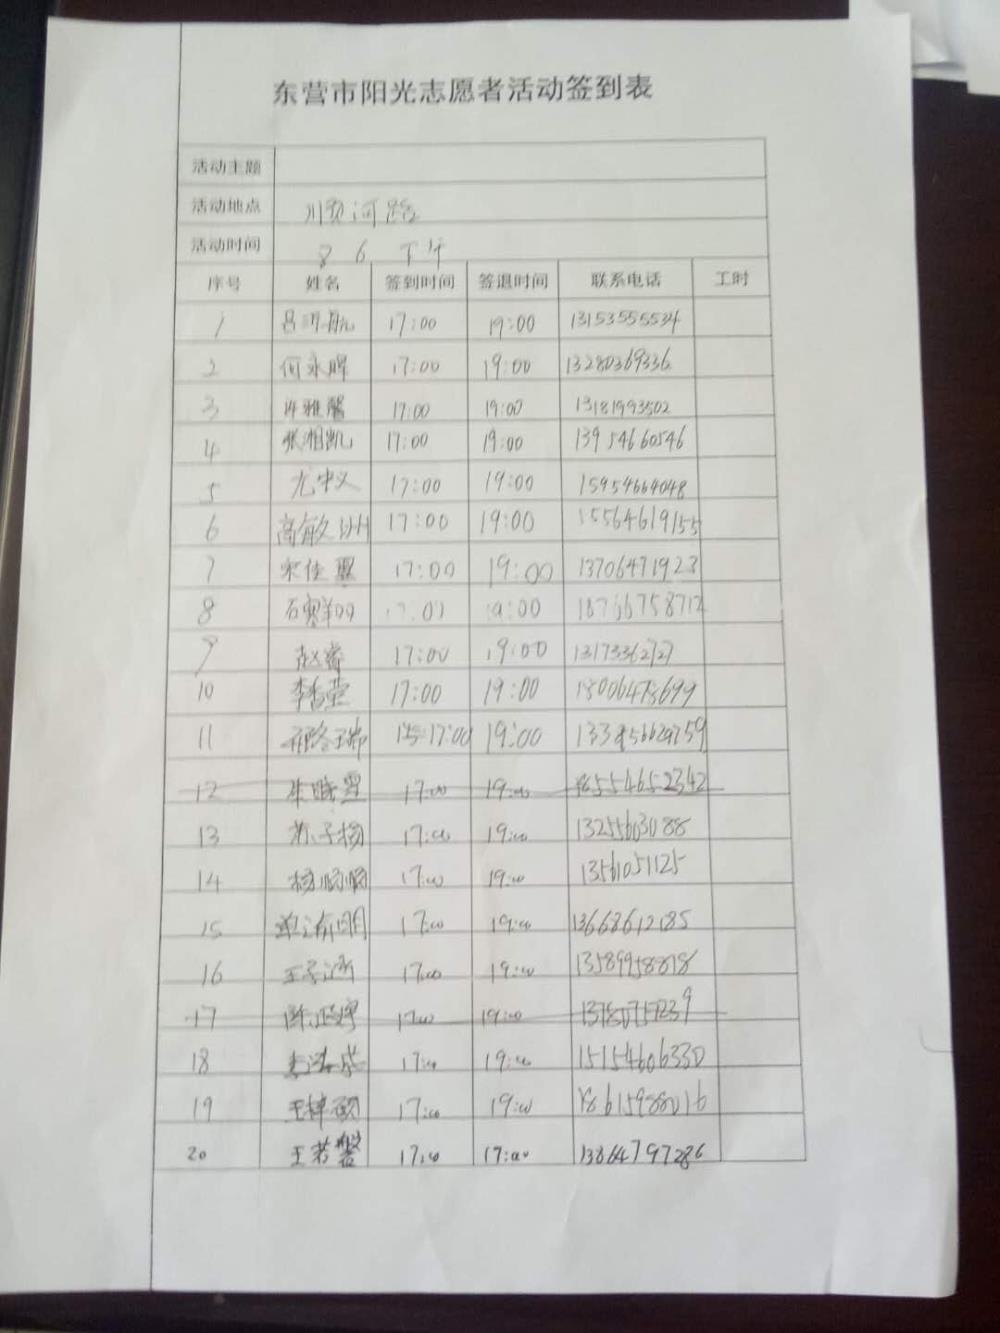 东营市阳光志愿者活动签到表
活动主题
活动地点 顺河路
活动时间 8 6 下午
序号 姓名 签到时间 签退时间 联系电话 工时
1 17:00 19:00 13153555534
2 何永晖 17:00 19:00 13280369336
3 许雅馨 17:00 19:00 13181993502
4 张湘凯 17:00 19:00 13954660546
5 尤中义 17:00 19:00 15954664048
6 高敏洲 17:00 19:00 15564619155
7 宋佳 17:00 19:00 13706471923
8 17:00 19:00 18766758712
9 赵睿 17:00 19:00 13173362727
10 李香莹 17:00 19:00 18006473699
11 17:00 19:00
12 17:00 19:00 18554652342
13 苏子杨 17:00 19:00 13255603088
14 杨顺顺 17:00 19:00 13561051125
15 17:00 19:00 13668612185
16 王子涵 17:00 19:00 13589958818
17 17:00 19:00
18 17:00 19:00 15154606330
19 王梓硕 17:00 19:00 18615988016
20 王若馨 17:00 17:00 13864797286